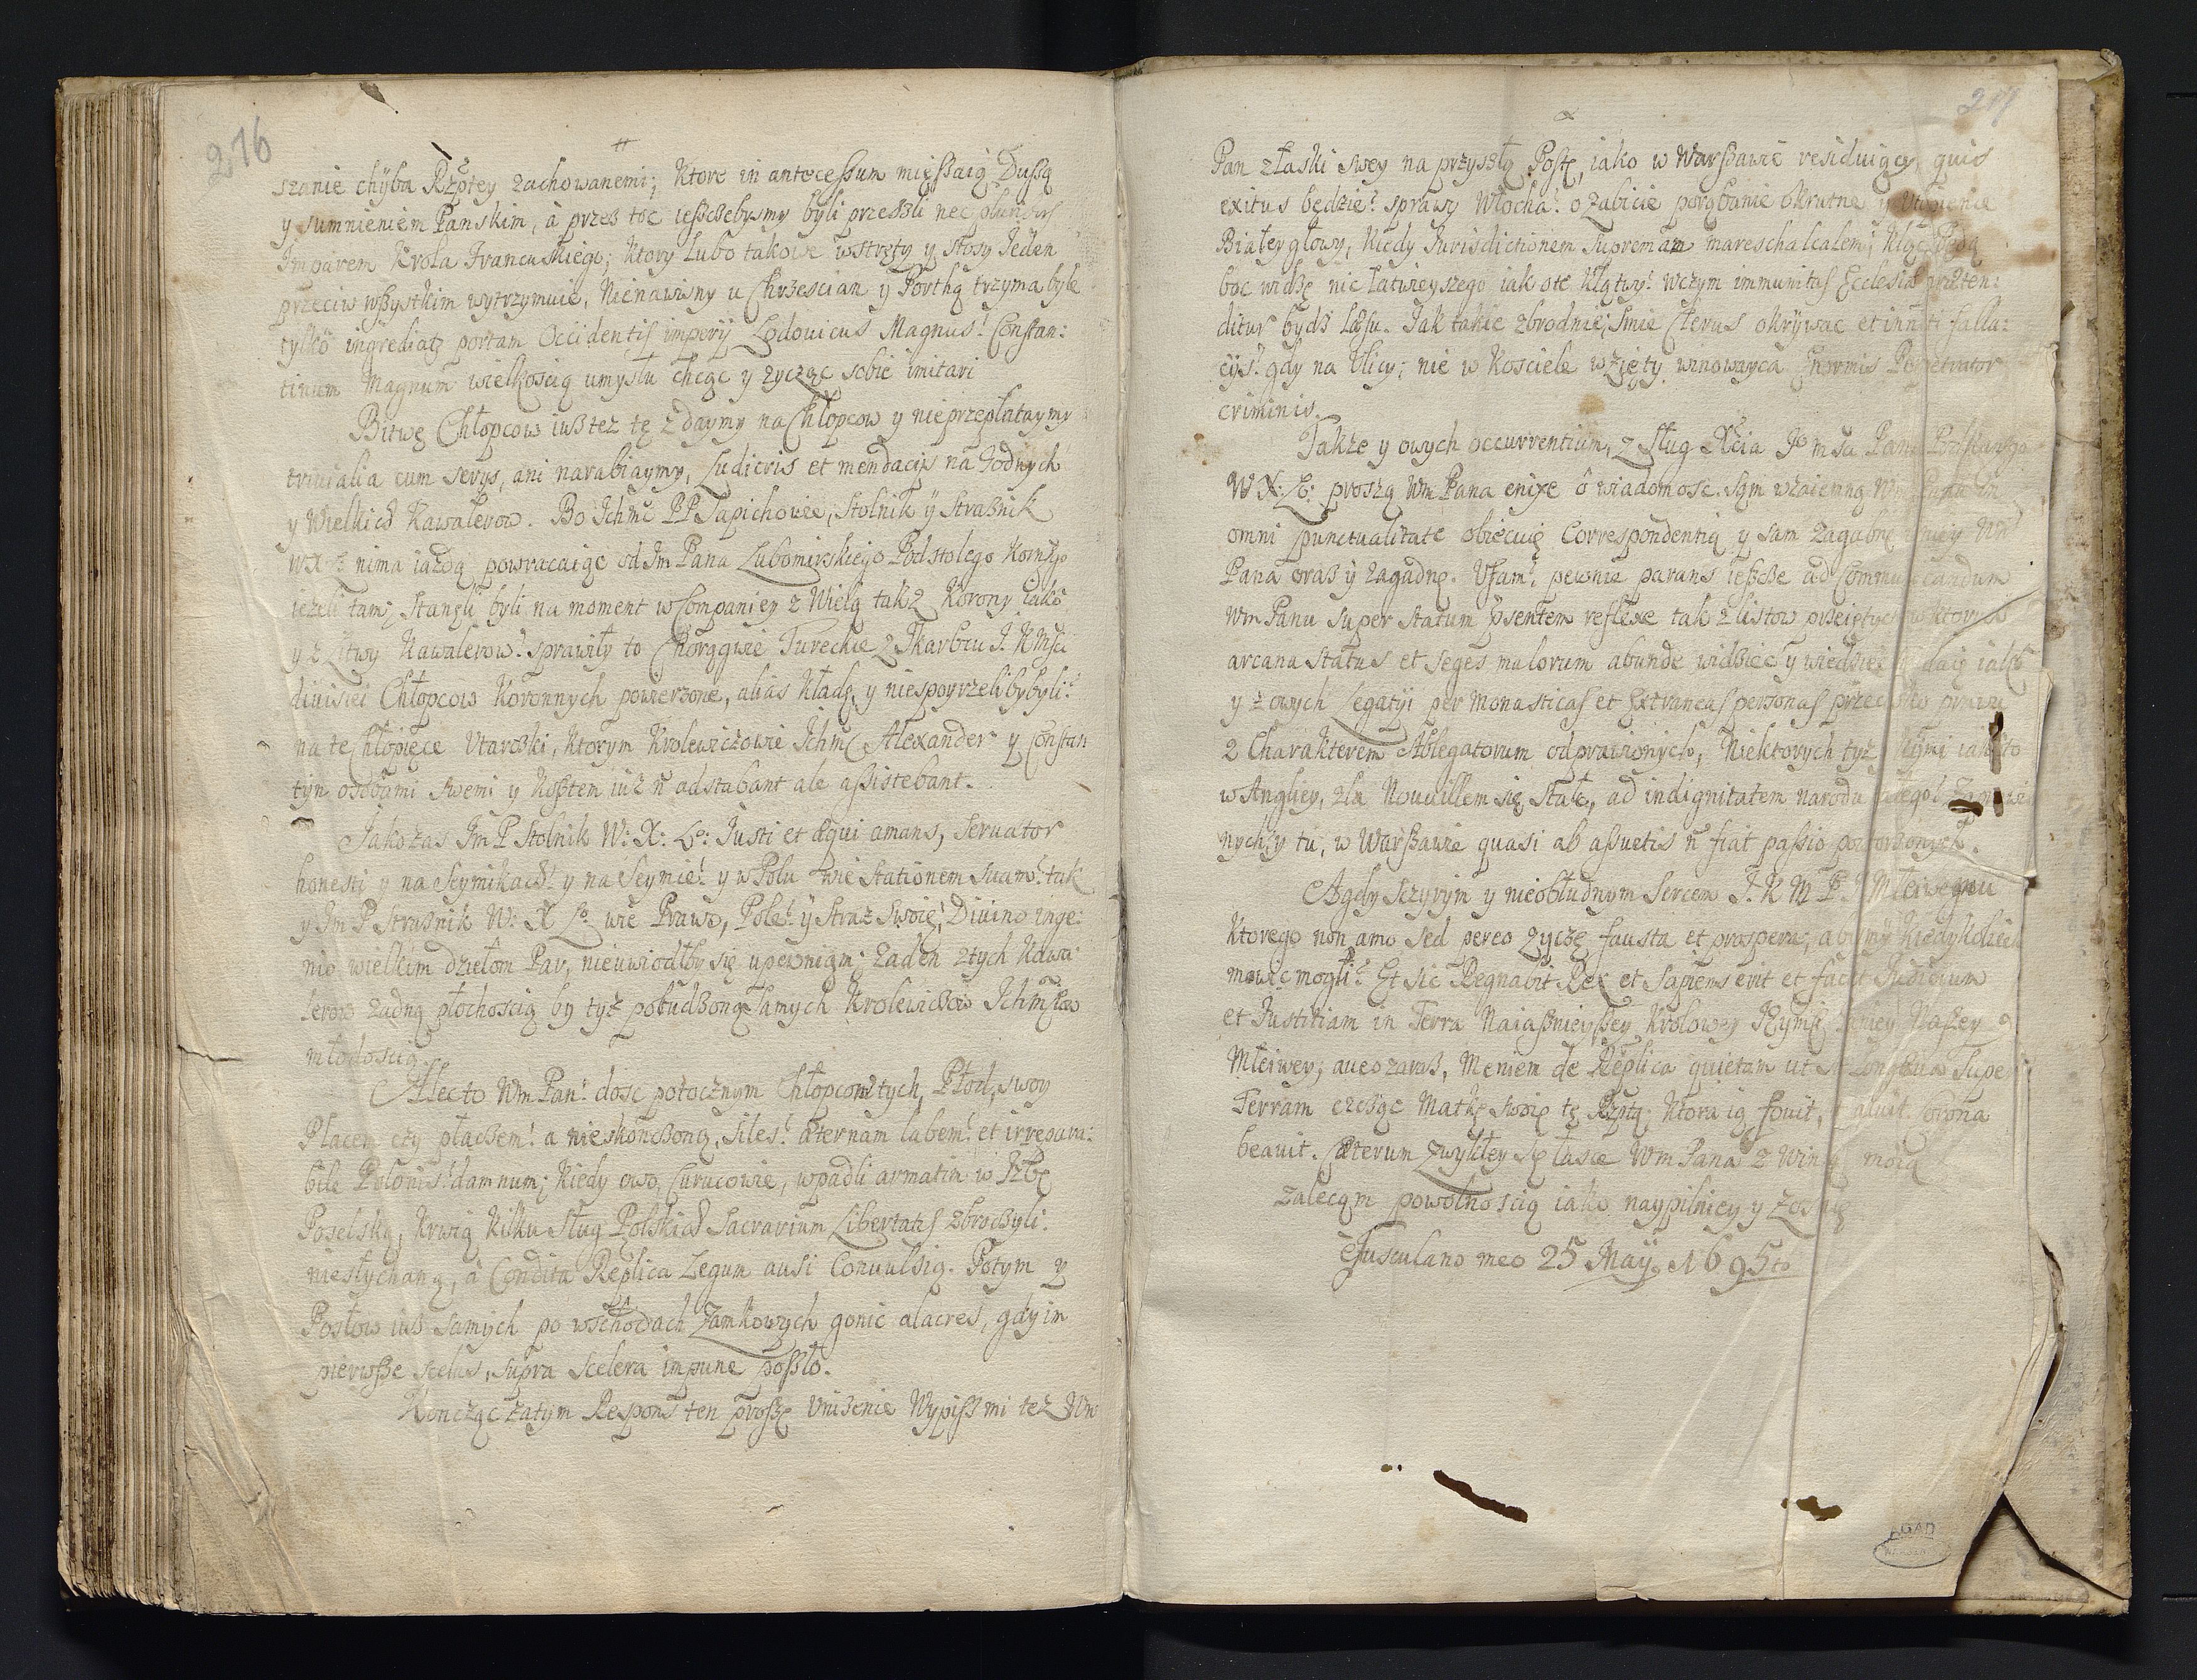 276
szanie chyba Rzptey zachowanemi; Ktore in antecessum mięszaią Duszą
y sumnieniem Panskim, à przez toc ieszczebysmy byli przeszli nec
Imparem Krola Francuskiego; Ktory lubo takowe wstręty y stosy Ieden
przeciw wszystkim wytrzymuie, Nienawisny u Chrzescian y Porthą trzyma byle
tylko ingrediatr portam Occidentis imperij Lodovicus Magnus! Constan:
tinum Magnum wielkoscią umysłu chcąc y zycząc sobie imitari
Bitwę Chłopcow iusz tez tę zdaymy na Chłopcow y nieprzeplataymy
trivialia cum serys, ani narabiaymy, Ludicris et mendacijs na Godnych
y Wielkich Kawalerow. Bo Ichmc PP Sapiehowie, Stolnik y Strasznik
WXL nima iazdą powracaiąc od Im Pana Lubomirskiego Podstolego Kornego
iezeli tam stanęli byli na moment w Companiey z Wielą tak z Korony iako
y z Litwy Kawalerow! sprawiły to Chorągwie Tureckie z Skarbcu J. K Msci
divisiei Chłopcow Koronnych powierzone, alias Kładę, y niespoyrzeliby byli!
na te Chłopięce Utarczki, Ktorym Krolewiczowie Ichmc Alexander y Constan
tyn osobami swemi y Kosztem iuż ñ adstabant ale assistebant.
Iakozas Im P Stolnik W: X: Lo: Iusti et æqui amans, servator
honesti y na Seymikach! y na Seymie! y w Polu wie Stationem suam! tak
y Im P Strasnik W: X Lo wie Prawo, Pole! y Straż Swoię! Divino inge:
nio wielkim dziełom Par, nieuwiodłby się upewnią; Zaden z tych Kawa:
lerow zadną płochoscią by tyż pobudzoną samych Krolewiczow Ichmsciow
młodoscią.
Alec to Wm Pan! dosc potocznym Chłopcow tych, Płod, swoy
Placem czy płaczem! a nieskonczoną, siles! æternam labem! et irrepara:
bile Polonis! damnum; Kiedy owo, Curucowie, wpadli armatim w Izbę
Poselską, Krwią Kilku sług Polskich Sacrarium Libertatis zbroczyli.
niesłychaną, à Condita Replica Legum ausi Convulsią. Potym y
Posłow iusz samych po wschodach Zamkowych gonic alacres, gdy im
pierwsze scelus, supra Scelera impune poszło.
Koncząc zatym Respons ten proszę Unizenie Wypisz mi tez Wm
Pan z łaski swey na przyszłą Postę, iako w Warszawie residuiący, quis
exitus będzie! sprawy Włocha! o zabicie porąbanie okrutne y utopienie
Białeygłowy, Kiedy Iurisdictionem Supremam mareschalcalem; Klęc
boc widzę nic łatwieyszego iak ote Klątwy! wczym immunitas Ecclesiæ præten:
ditur bydz Læsa. Iak takie zbrodnie; smie Clerus okrywac et inniti falla:
cijs! gdy na Ulicy; nie w Kosciele wzięty winowayca Enormis Perpetrator
criminis.
Takze y owych occurrentium, z Sług Xcia Jo msci Pana
W X: L: proszą Wm Pana enixe o wiadomosc. sąm wzaiemną Wm Panu in
omni punctualitate obiecuię Correspondentią y sam zagabnę Wm
Pana oraz y zagadnę. Ufam! pewnie parans ieszcze ad Communicandum
Wm Panu super statum præsentem reflexe tak z listow
arcana status et seges malorum abunde widziec y wiedziec daią iako
y z owych Legatyi per Monasticas et Extraneas personas przeciwko prawu
z Charakterem Ablegatorum odprawionych, Niektorych tyż iako to
w Angliey, zla Nouvillem się stało, ad indignitatem narodu
nych, y tu, w Warszawie quasi ab assuetis ñ fiat passio powtorzonych.
Agdy Szczyrym y nieobłudnym Sercem J. K M P. Mlciwemu
Ktorego non amo sed pereo zyczę fausta et prospera, abysmy Kiedykolwiek
mowic mogli! Et sic Regnabit Rex et Sapiens erit et faciet Iudicium
et Iustitiam in Terra Naiasnieyszey Krolowey Naszey
Mlciwey; aveo zaraz, Meniem de Replica quietam ut sit Longæva Super
Terram czcząc Matkę swoię tę Rzptą; Ktora ią fovit, aluit, Corona
beavit. Cæterum zwykłey się łasce Wm Pana z Winną moią
zalecąm powolnoscią iako naypilniey y zosnię
è Tusculano meo 25 Maij 1695to
AGAD